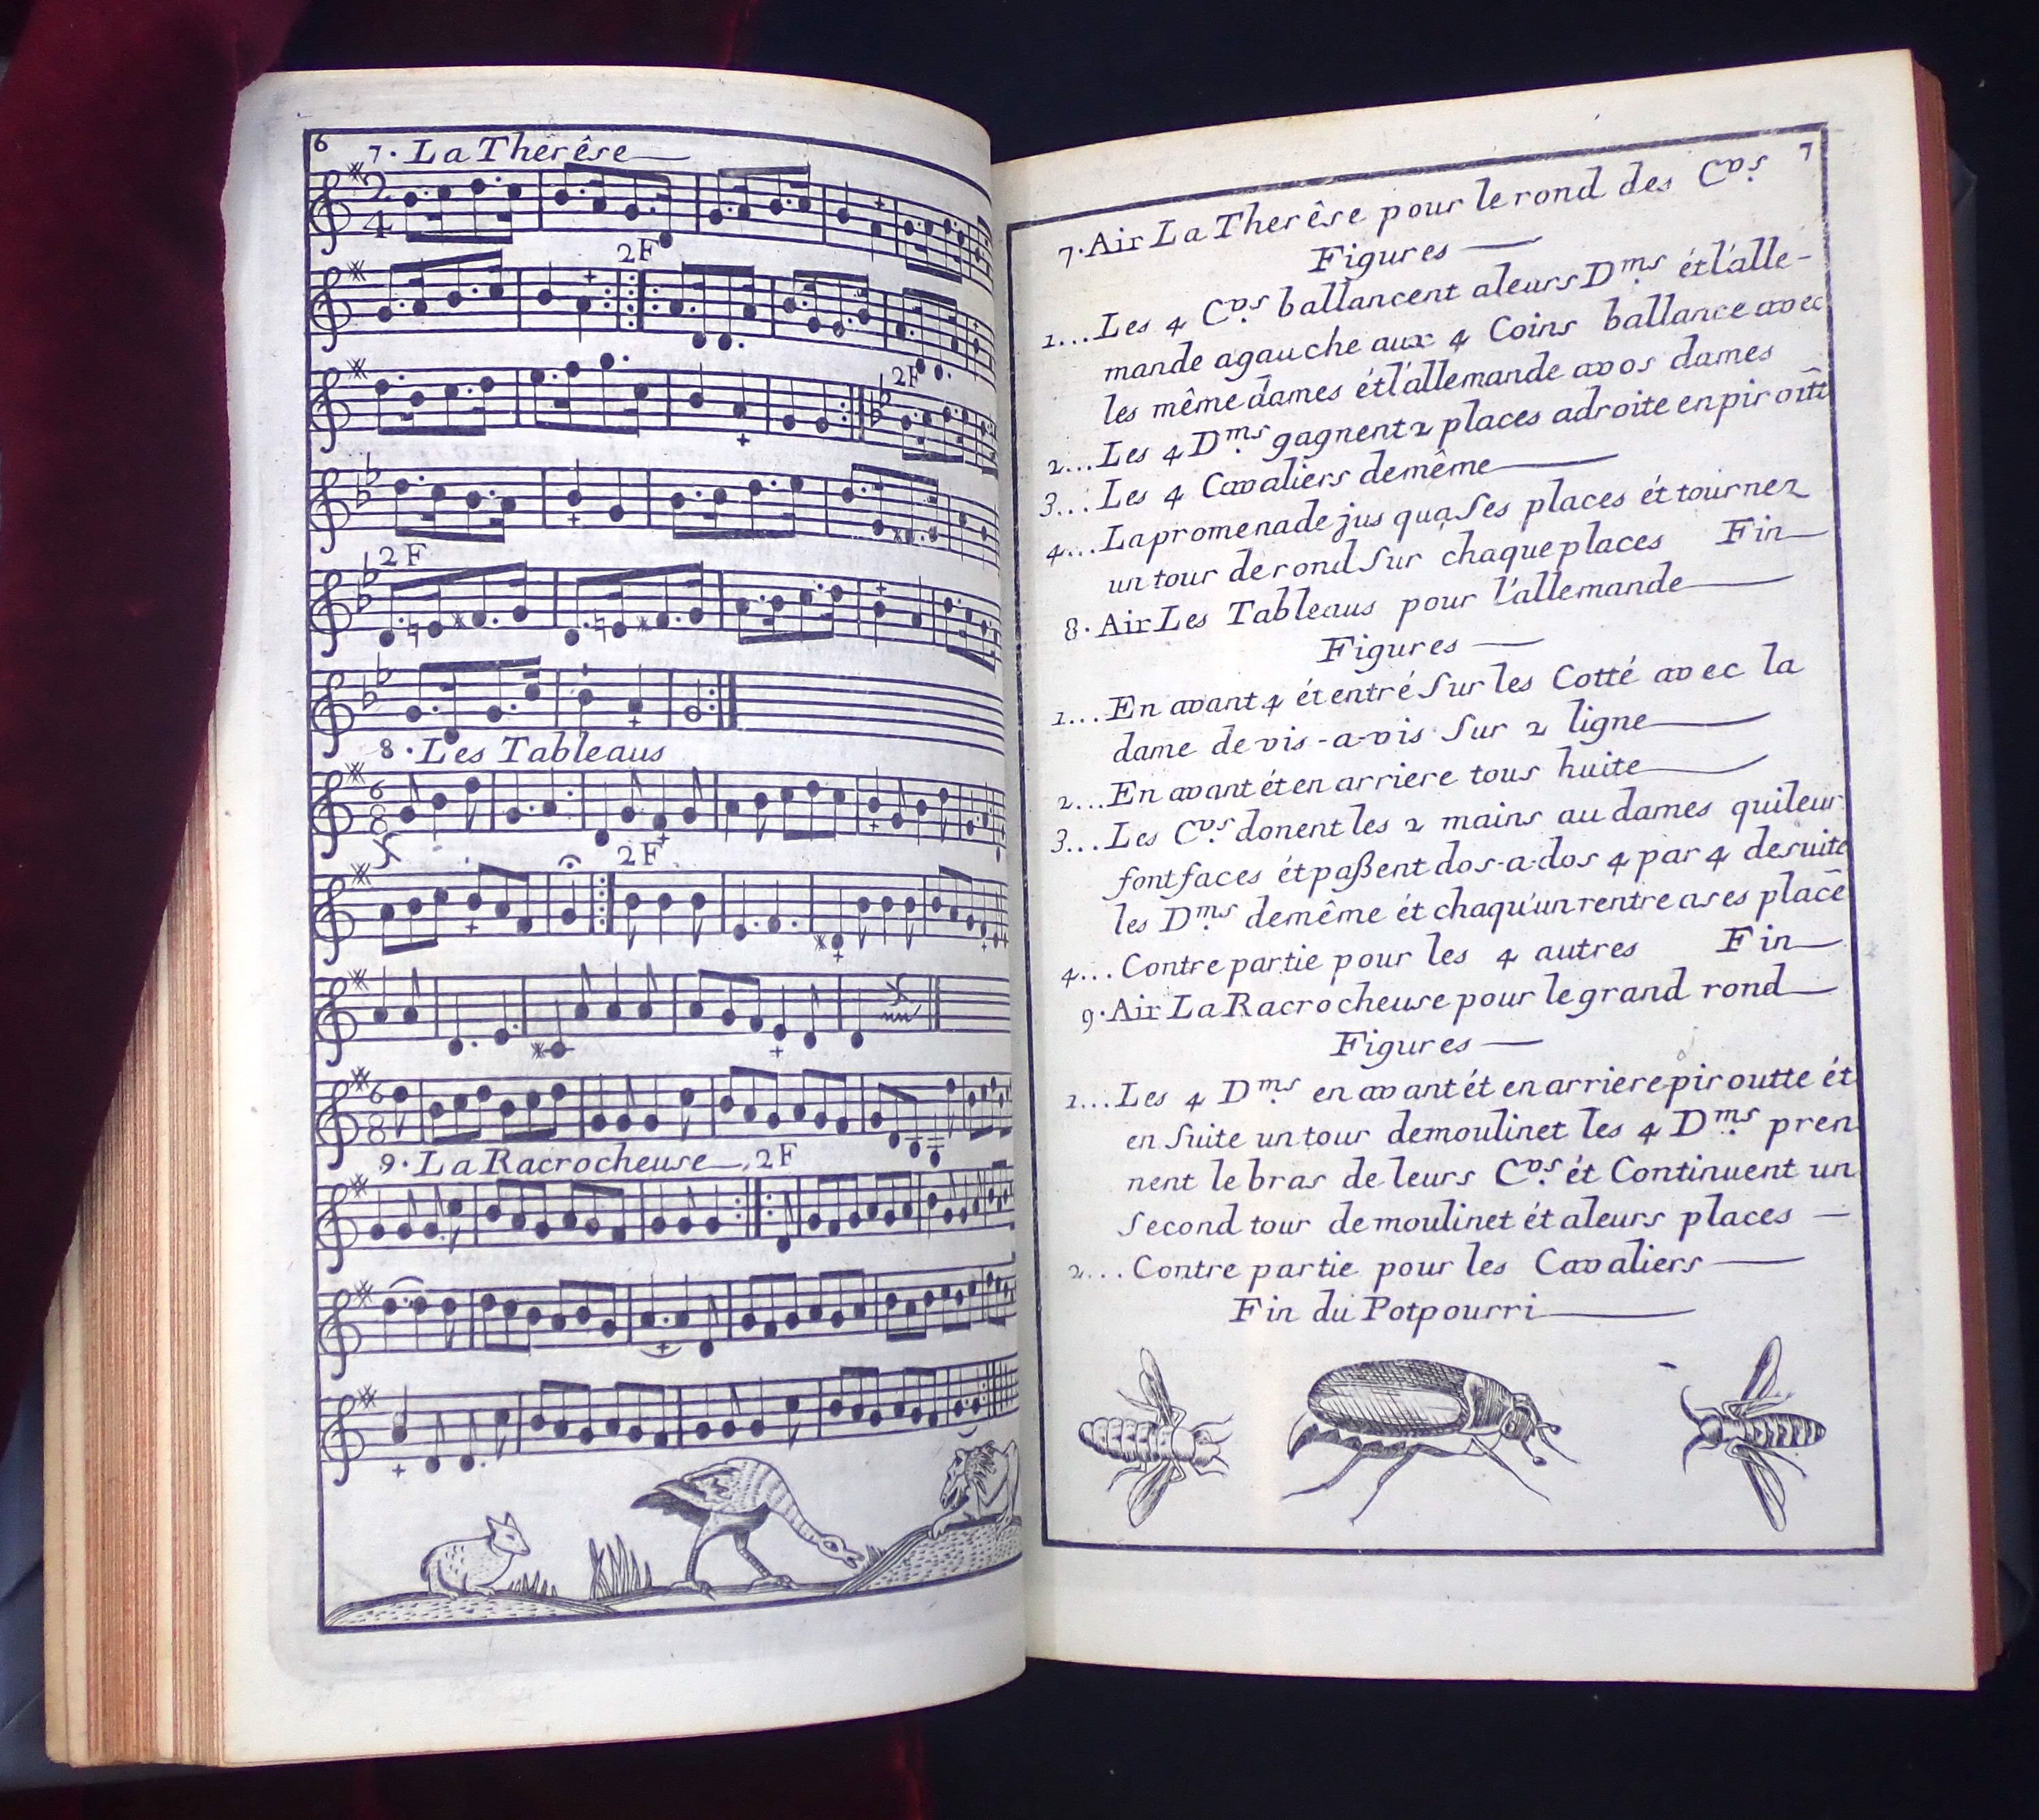 6
7. La Therêse
2
4
2F
2F
2F
8. Les Tableaus
6
8
2F
6
8
9. La Racrocheuse, 2F
7
7. Air La Therêse pour le rond des C.vs
Figures
1... Les 4 C.vs ballancent a leurs D.ms ét l'alle-
mande a gauche aux 4 Coins ballance avec
les même dames ét l'allemande a vos dames
2... Les 4 D.ms gagnent 2 places adroite en piroũtt
3... Les 4 Cavaliers demême
4... La promenade jus qua ses places ét tournez
un tour de rond sur chaque places Fin
8. Air Les Tableaus pour l'allemande
Figures
1... En avant 4 ét entré sur les Cotté avec la
dame de vis-a-vis sur 2 ligne
2... En avant ét en arriere tous huite
3... Les C.vs donent les 2 mains au dames qui leur
font faces ét paßent dos-a-dos 4 par 4 desuite
les D.ms demême ét chaqu'un rentre a ses placẽ
4... Contre partie pour les 4 autres Fin
9. Air La Racrocheuse pour le grand rond
Figures
1... Les 4 D.ms en avant ét en arriere piroutte ét
en suite un tour de moulinet les 4 D.ms pren
nent le bras de leurs C.vs ét Continuent un
second tour de moulinet ét a leurs places
2... Contre partie pour les Cavaliers
Fin du Potpourri